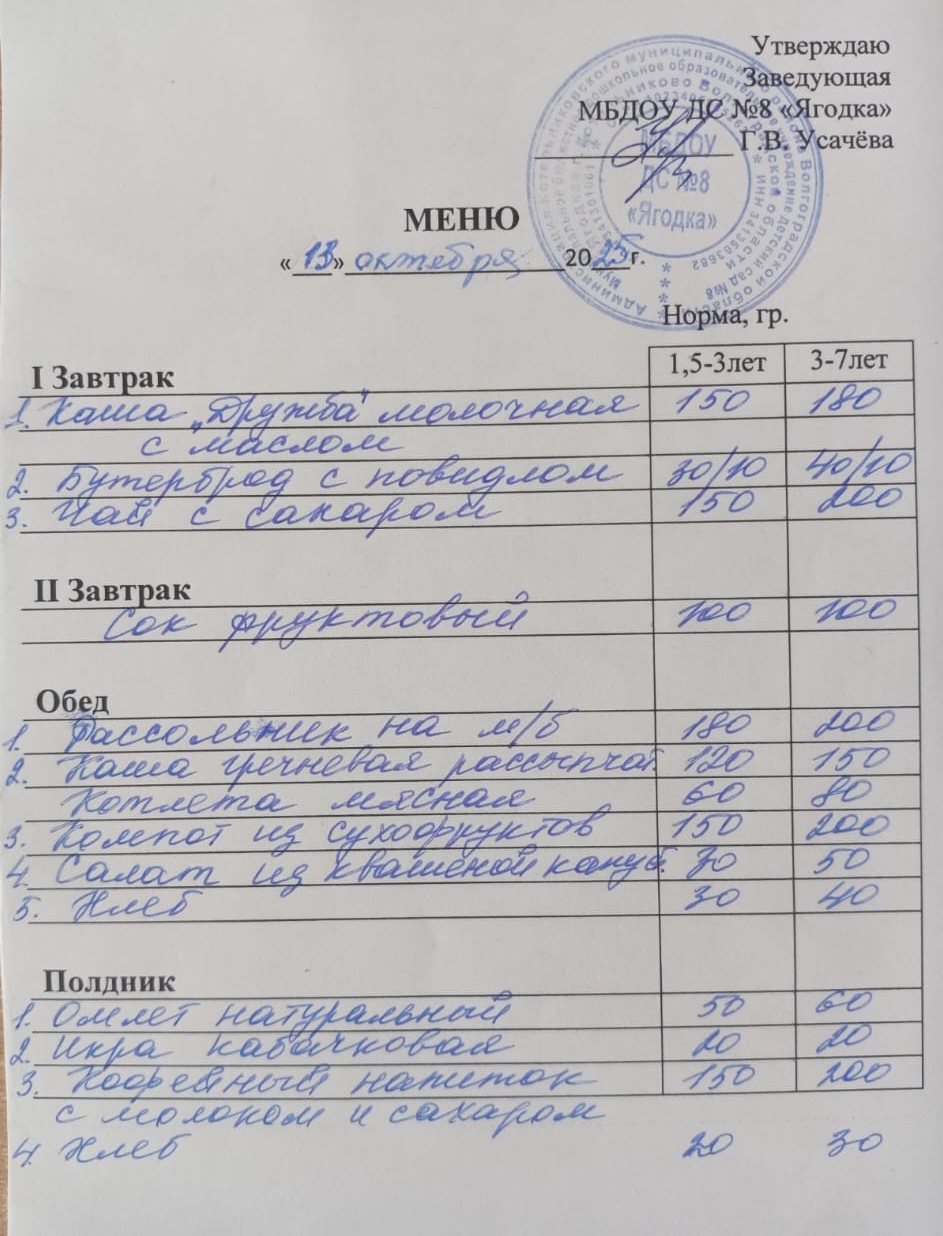 Утверждаю
Заведующая
МБДОУ ДС №8 «Ягодка»
Г.В. Усачёва
МБДОУ
ДС №8
«Ягодка»
МЕНЮ
«13» октября 2025г.
Норма, гр.
I Завтрак 1,5-3лет 3-7лет
1. Каша „Дружба" молочная 150 180
с маслом
2. Бутерброд с повидлом 30/10 40/10
3. Чай с сахаром 150 200
II Завтрак
Сок фруктовый 100 100
Обед
1. Рассольник на м/б 180 200
2. Каша гречневая рассыпчат. 120 150
Котлета мясная 60 80
3. Компот из сухофруктов 150 200
4. Салат из квашеной капуст. 30 50
5. Хлеб 30 40
Полдник
1. Омлет натуральный 50 60
2. Икра кабачковая 20 20
3. Кофейный напиток 150 200
с молоком и сахаром
4. Хлеб 20 30